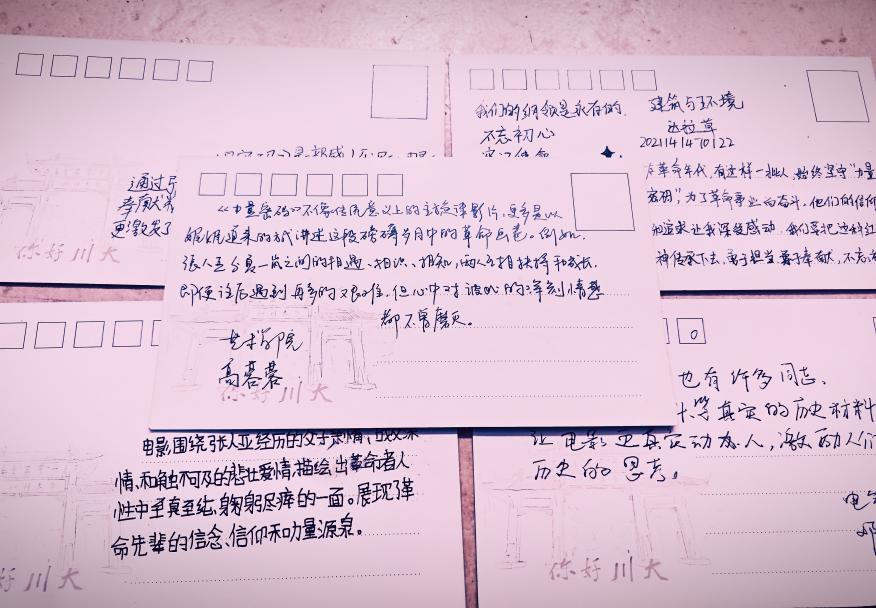 我们的纲领是永存的,
不忘初心
建筑与环境
达拉草
2021141470122
通过
奉献
更激发了
革命年代,有这样一批人,始终坚守“力量
密码”,为了革命事业而奋斗。他们的信仰
和追求让我深受感动,我们要把这种红
神传承下去,勇于担当勇于奉献,不忘
你好川大
《力量密码》不像传统意义上的主旋律影片,更多是以
娓娓道来的方式讲述这段磅礴岁月中的革命画卷。例如,
张人亚与真一岚之间的相遇、相识、相知,两人互相扶持和成长,
即便这后遇到再多的艰难,但心中对彼此的深刻情感
都不曾磨灭。
艺术学院
高蓉蓉
你好川大
电影围绕张人亚经历的父子
情、和触不可及的悲壮爱情,描绘出革命者人
性中至真至纯,鞠躬尽瘁的一面。展现了革
命先辈的信念、信仰和力量源泉。
好川大
0
也有许多同志、
等真实的历史材料
让电影更真实动人,激励人们
历史的思考。
电
你好川大